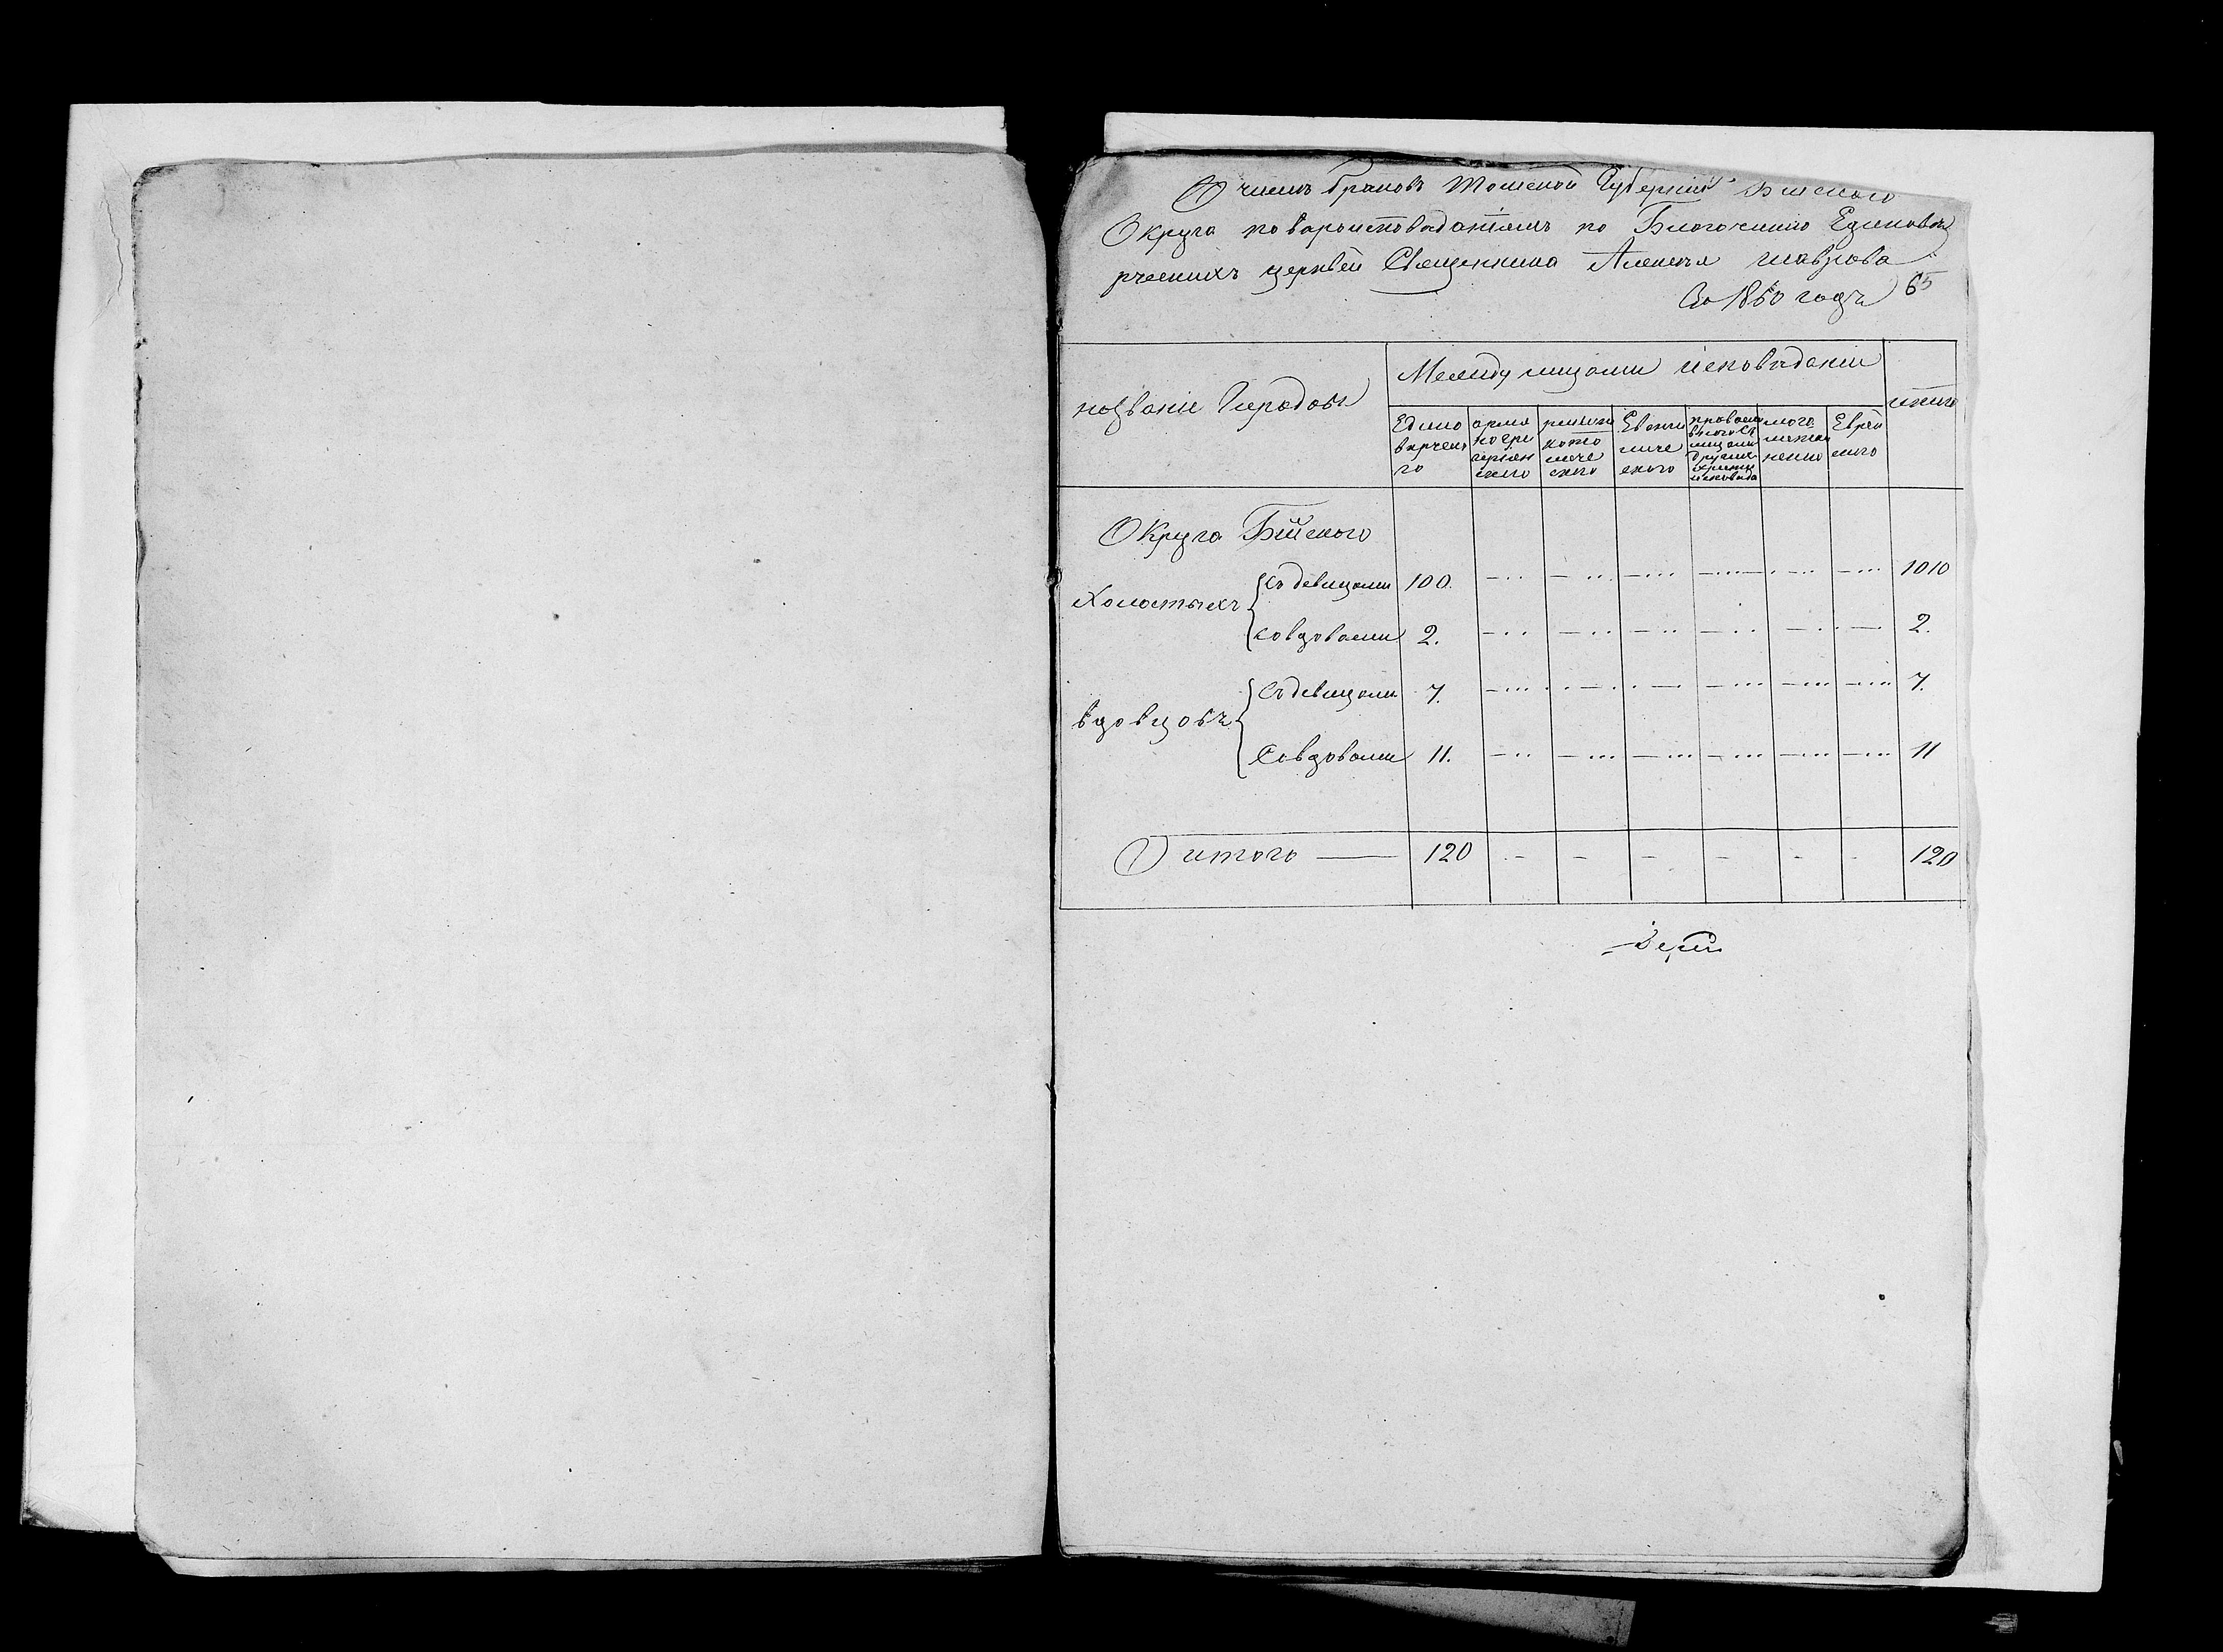 О числѣ браковъ Томской Губерніи Бійскаго
Округа по вѣроисповѣданіямъ по Благочинію Единовѣ
рческихъ церквей Священника Алексѣя Лаврова
За 1860 годъ 65
Между лицами исповѣданій
названіе Городовъ
итого
Едино вѣрческа го
армя но гри гориан скаго
римско като личе скаго
Еванги личе скаго
православнаго съ лицами другихъ христі исповѣда
мого метан скаго
Еврей скаго
Округа Бійскаго
Холостыхъ
съ девицами 100. 1010
со вдовами 2. 2.
вдовцовъ
съ девицами 7. 7.
Со вдовами 11. 11
итого — 120 - - - - - - 120